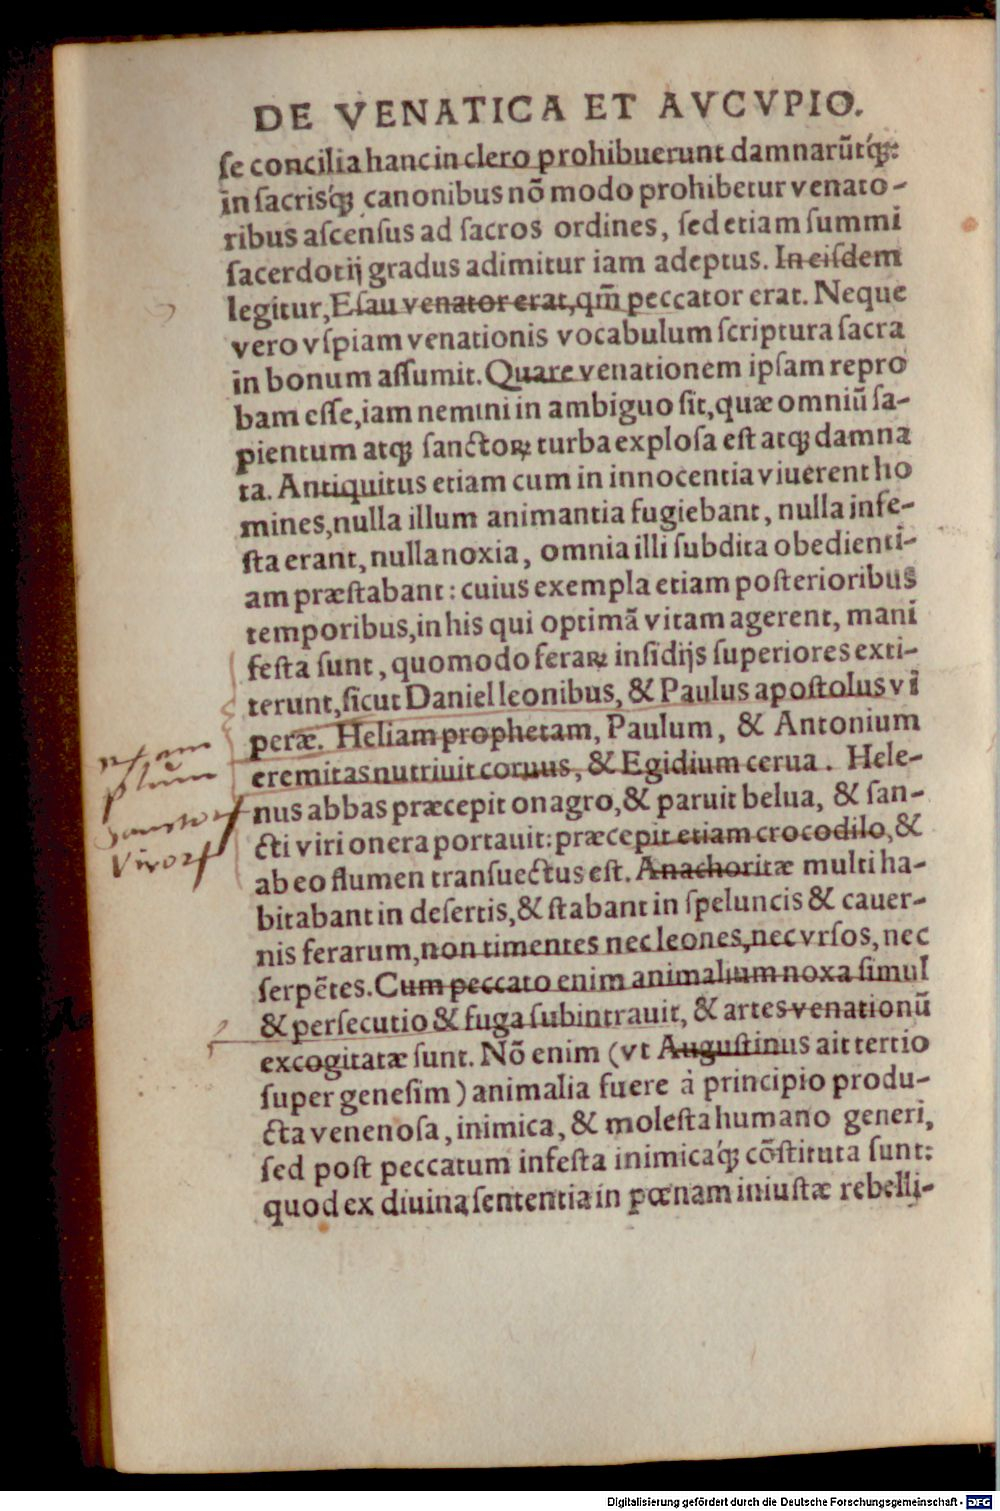 DE VENATICA ET AVCVPIO.
ſe concilia hanc in clero prohibuerunt damnarūtq́ꝫ:
in ſacriſq́ꝫ canonibus nō modo prohibetur venato-
ribus aſcenſus ad ſacros ordines, ſed etiam ſummi
ſacerdotij gradus adimitur iam adeptus. In eiſdem
legitur, Eſau venator erat, qm̄ peccator erat. Neque
vero vſpiam venationis vocabulum ſcriptura ſacra
in bonum aſſumit. Quare venationem ipſam repro
bam eſſe, iam nemini in ambiguo ſit, quæ omniū ſa-
pientum atqꝫ ſanctoꝝ turba exploſa eſt atqꝫ damna
ta. Antiquitus etiam cum in innocentia viuerent ho
mines, nulla illum animantia fugiebant, nulla infe-
ſta erant, nulla noxia, omnia illi ſubdita obedienti-
am præſtabant: cuius exempla etiam poſterioribus
temporibus, in his qui optimā vitam agerent, mani
feſta ſunt, quomodo feraꝝ inſidijs ſuperiores exti-
terunt, ſicut Daniel leonibus, & Paulus apoſtolus vi
peræ. Heliam prophetam, Paulum, & Antonium
eremitas nutriuit coruus, & Egidium cerua. Hele-
nus abbas præcepit onagro, & paruit belua, & ſan-
cti viri onera portauit: præcepit etiam crocodilo, &
ab eo flumen tranſuectus eſt. Anachoritæ multi ha-
bitabant in deſertis, & ſtabant in ſpeluncis & cauer-
nis ferarum, non timentes nec leones, nec vrſos, nec
ſerpētes. Cum peccato enim animalium noxa ſimul
& perſecutio & fuga ſubintrauit, & artes venationū
excogitatæ ſunt. Nō enim (vt Auguſtinus ait tertio
ſuper geneſim) animalia fuere à principio produ-
cta venenoſa, inimica, & moleſta humano generi,
ſed poſt peccatum infeſta inimicaq́ꝫ cōſtituta ſunt:
quod ex diuina ſententia in pœnam iniuſtæ rebelli-
Sanctoꝝ
Viroꝝ
Digitalisierung gefördert durch die Deutsche Forschungsgemeinschaft - DFG